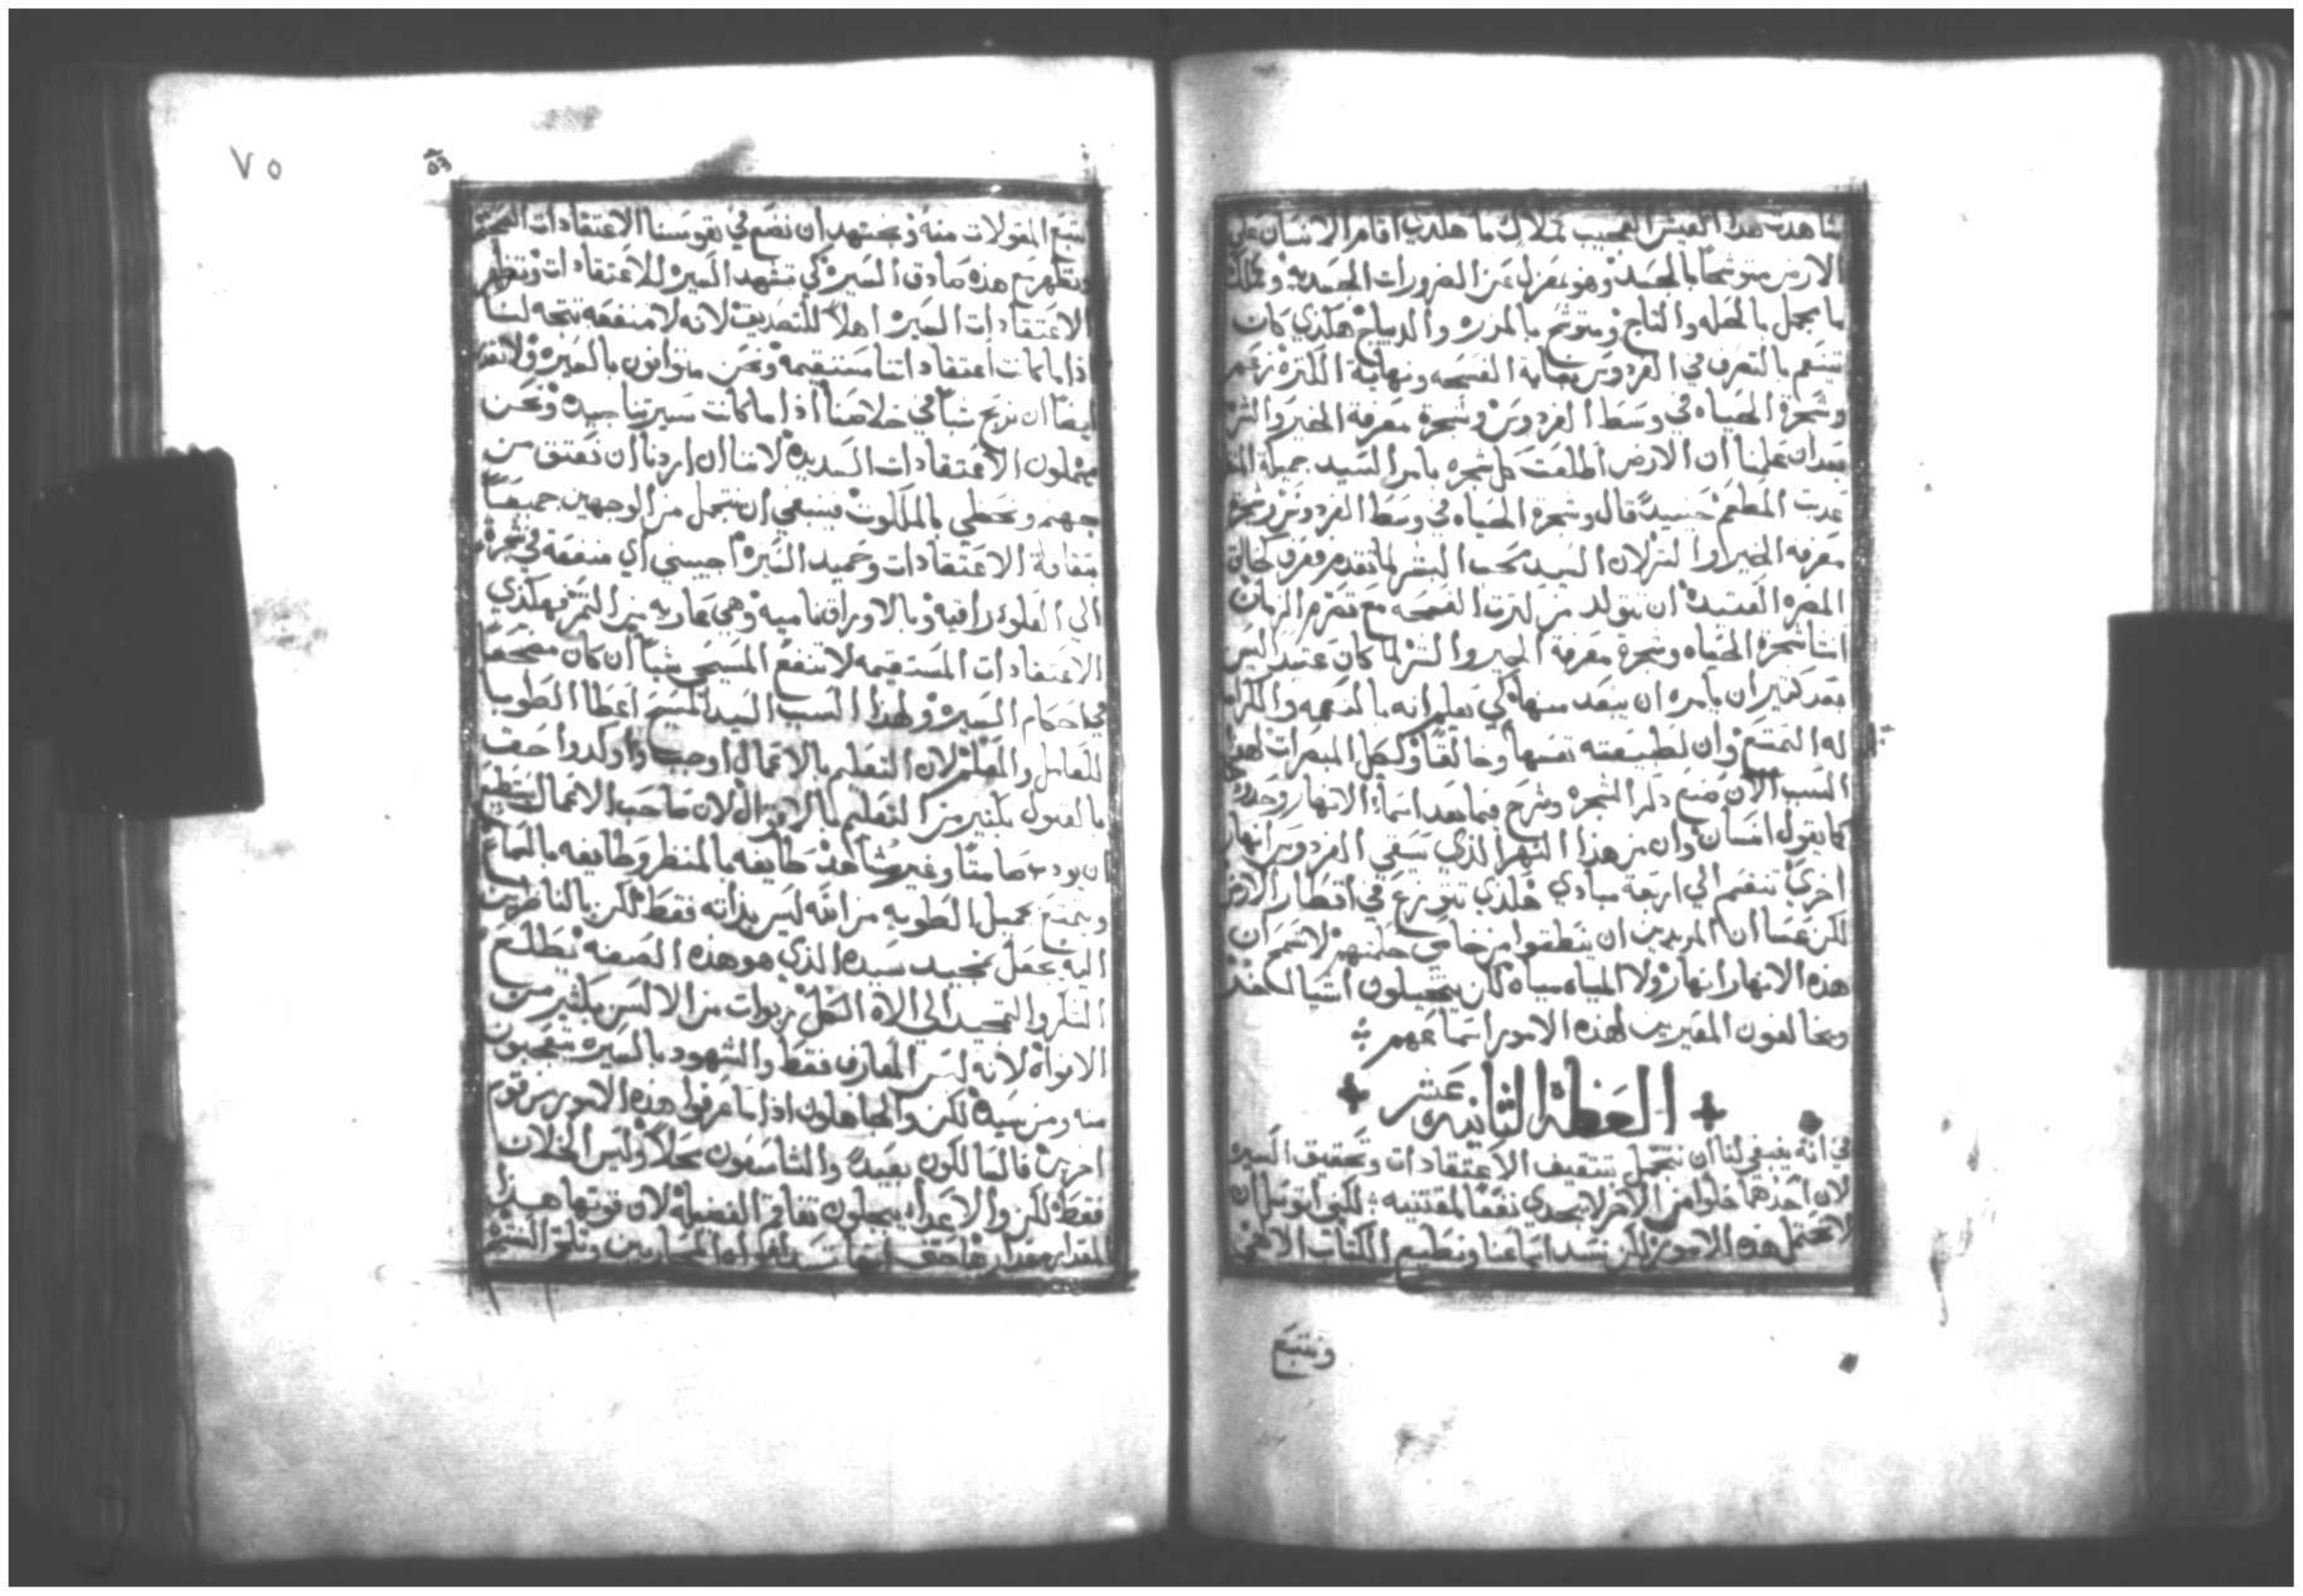 شاهدت هذا العيش العجيب كملاك ما هكذي اقام الانسان علي
الارض متوشحاً بالجسد وهو بمعزل عن الضرورات الجسديه وكملك
ما يجمل بالحله والتاج ومتوشح بالمزره والديباج هكذي كان
يتنعم بالتصرف في الفردوس
وشجرة الحياه في وسط الفردوس وشجرة معرفة الخير والشر
بعد ان علمنا ان الارض اطلعت كل شجره بامر السيد جميلة
عدبت المطعم حينيد قال وشجرة الحياه في وسط الفردوس وشجرة
معرفة الخير والشر لان السيد محب البشر لما تقدم فعرف
المضره العتيده ان تتولد من كثرت الفسحه مع تصرم الزمان
انشا شجرة الحياه وشجرة معرفة الخير والشر لما كان عتيد
بعد كثير ان يامره ان يبتعد منها كي يعلم انه بالنعمه
له التمتع وان لطبيعته نفسها وخالقاً ولكل المبصرات لهذا
السبب الان صنع ذكر الشجره وشرح فيما بعد اسما الانهار وحدود
كما يقول انسان وان من هذا النهر الذي يسقي الفردوس انهار
اخري تنقسم الي اربعة مبادي هكذي تتوزع في اقطار الارض
لكن عسا ان المريدين ان ينطقوا من خاص حكمتهم لا ان
هذه الانهار انهار ولا المياه مياه لكن يتخيلون اشيا
ويخالفون المعيرين لهذه الامور اسماعهم
العظة الثانيه عشر
في انه ينبغي لنا ان نتجمل بتثقيف الاعتقادات وتحقيق السيره
لان احدهما خلوا من الاخر لا يجدي نفعاً لمقتنيه لكني اتوسل ان
لا نحتمل هذه الامور لكن نسد اسماعنا ونطيع الكتاب الالهي
ونتبع
٧٥
نتبع المقولات منه ونجتهد ان نضع في نفوسنا الاعتقادات الصحيحه
ونظهر مع هذه صادق السيره كي تشهد السيره للاعتقادات وتظهر
الاعتقادات السيره اهلاً للتصديق لانه لا منفعه تتجه لنا
اذا ما كانت اعتقاداتنا مستقيمه ونحن متوانون بالسيره ولا نقدر
ايضاً ان نربح شياً في خلاصنا اذا ما كانت سيرتنا جيده ونحن
مهملون الاعتقادات السديده لاننا ان اردنا ان نعتق من
جهنم ونحظي بالملكوت فينبغي ان نتجمل من الوجهين جميعاً
بثقافة الاعتقادات وحميد السيره اجيبني اي منفعه في شجره
الي العلو راقيه وبالاوراق ناميه وهي عاريه من الثمر فهكذي
الاعتقادات المستقيمه لا تنفع المسيحي شياً ان كان مضجعاً
في احكام السيره ولهذا السبب السيد المسيح اعطا الطوبا
للعامل والمعلم لان التعليم بالاعمال اوجب واوكد واحق
بالقبول بكثير من التعليم بالاقوال لان صاحب الاعمال يستطيع
ان يودب صامتاً وغير مشاهد طايفه بالمنظر وطايفه بالسماع
ويتمتع بجميل الطويه من الله ليس بذاته فقط لكن بالناظرين
اليه يعمل تمجيد سيده الذي هو هذه الصفه يطلع
الشكر والتمجيد الي الاه الكل ربوات من الالسن بكثير من
الافواه لانه ليس المعارف فقط والشهود بالسيره يتعجبون
منه ومن سيده لكن والجاهلون اذا ما عرفوا هذه الامور من قوم
اخرين فالساكنون بعيداً والشاسعون محلاً وليس الخلان
فقط لكن والاعداء يبجلون تفاقم الفضيله لان قوتها هذا
المقدار مقدارها